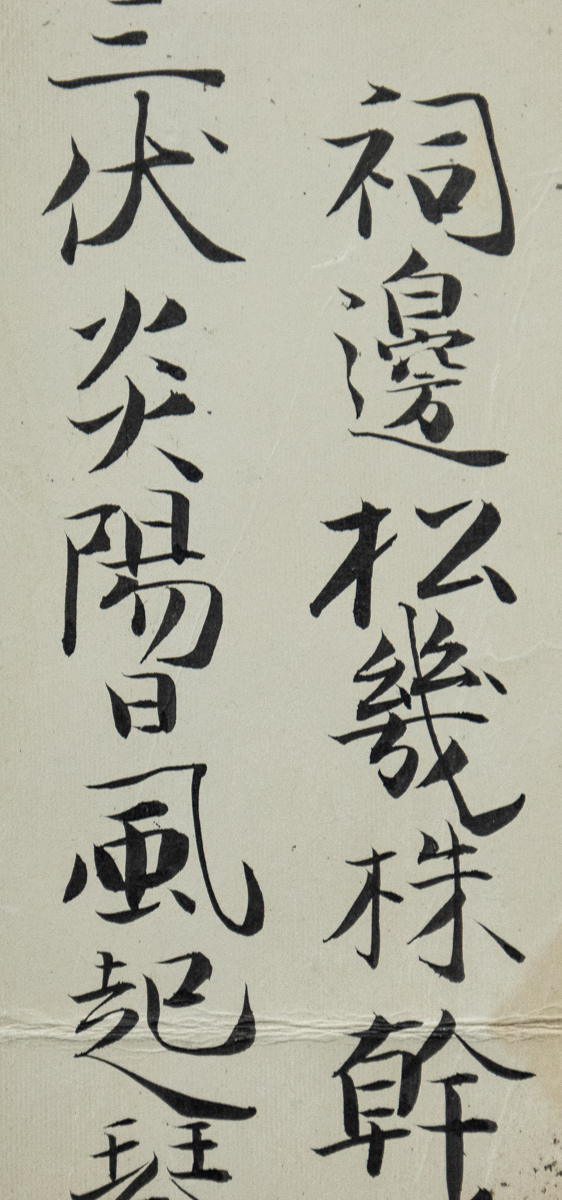 祠邊松幾株幹
三伏炎陽日風起琴